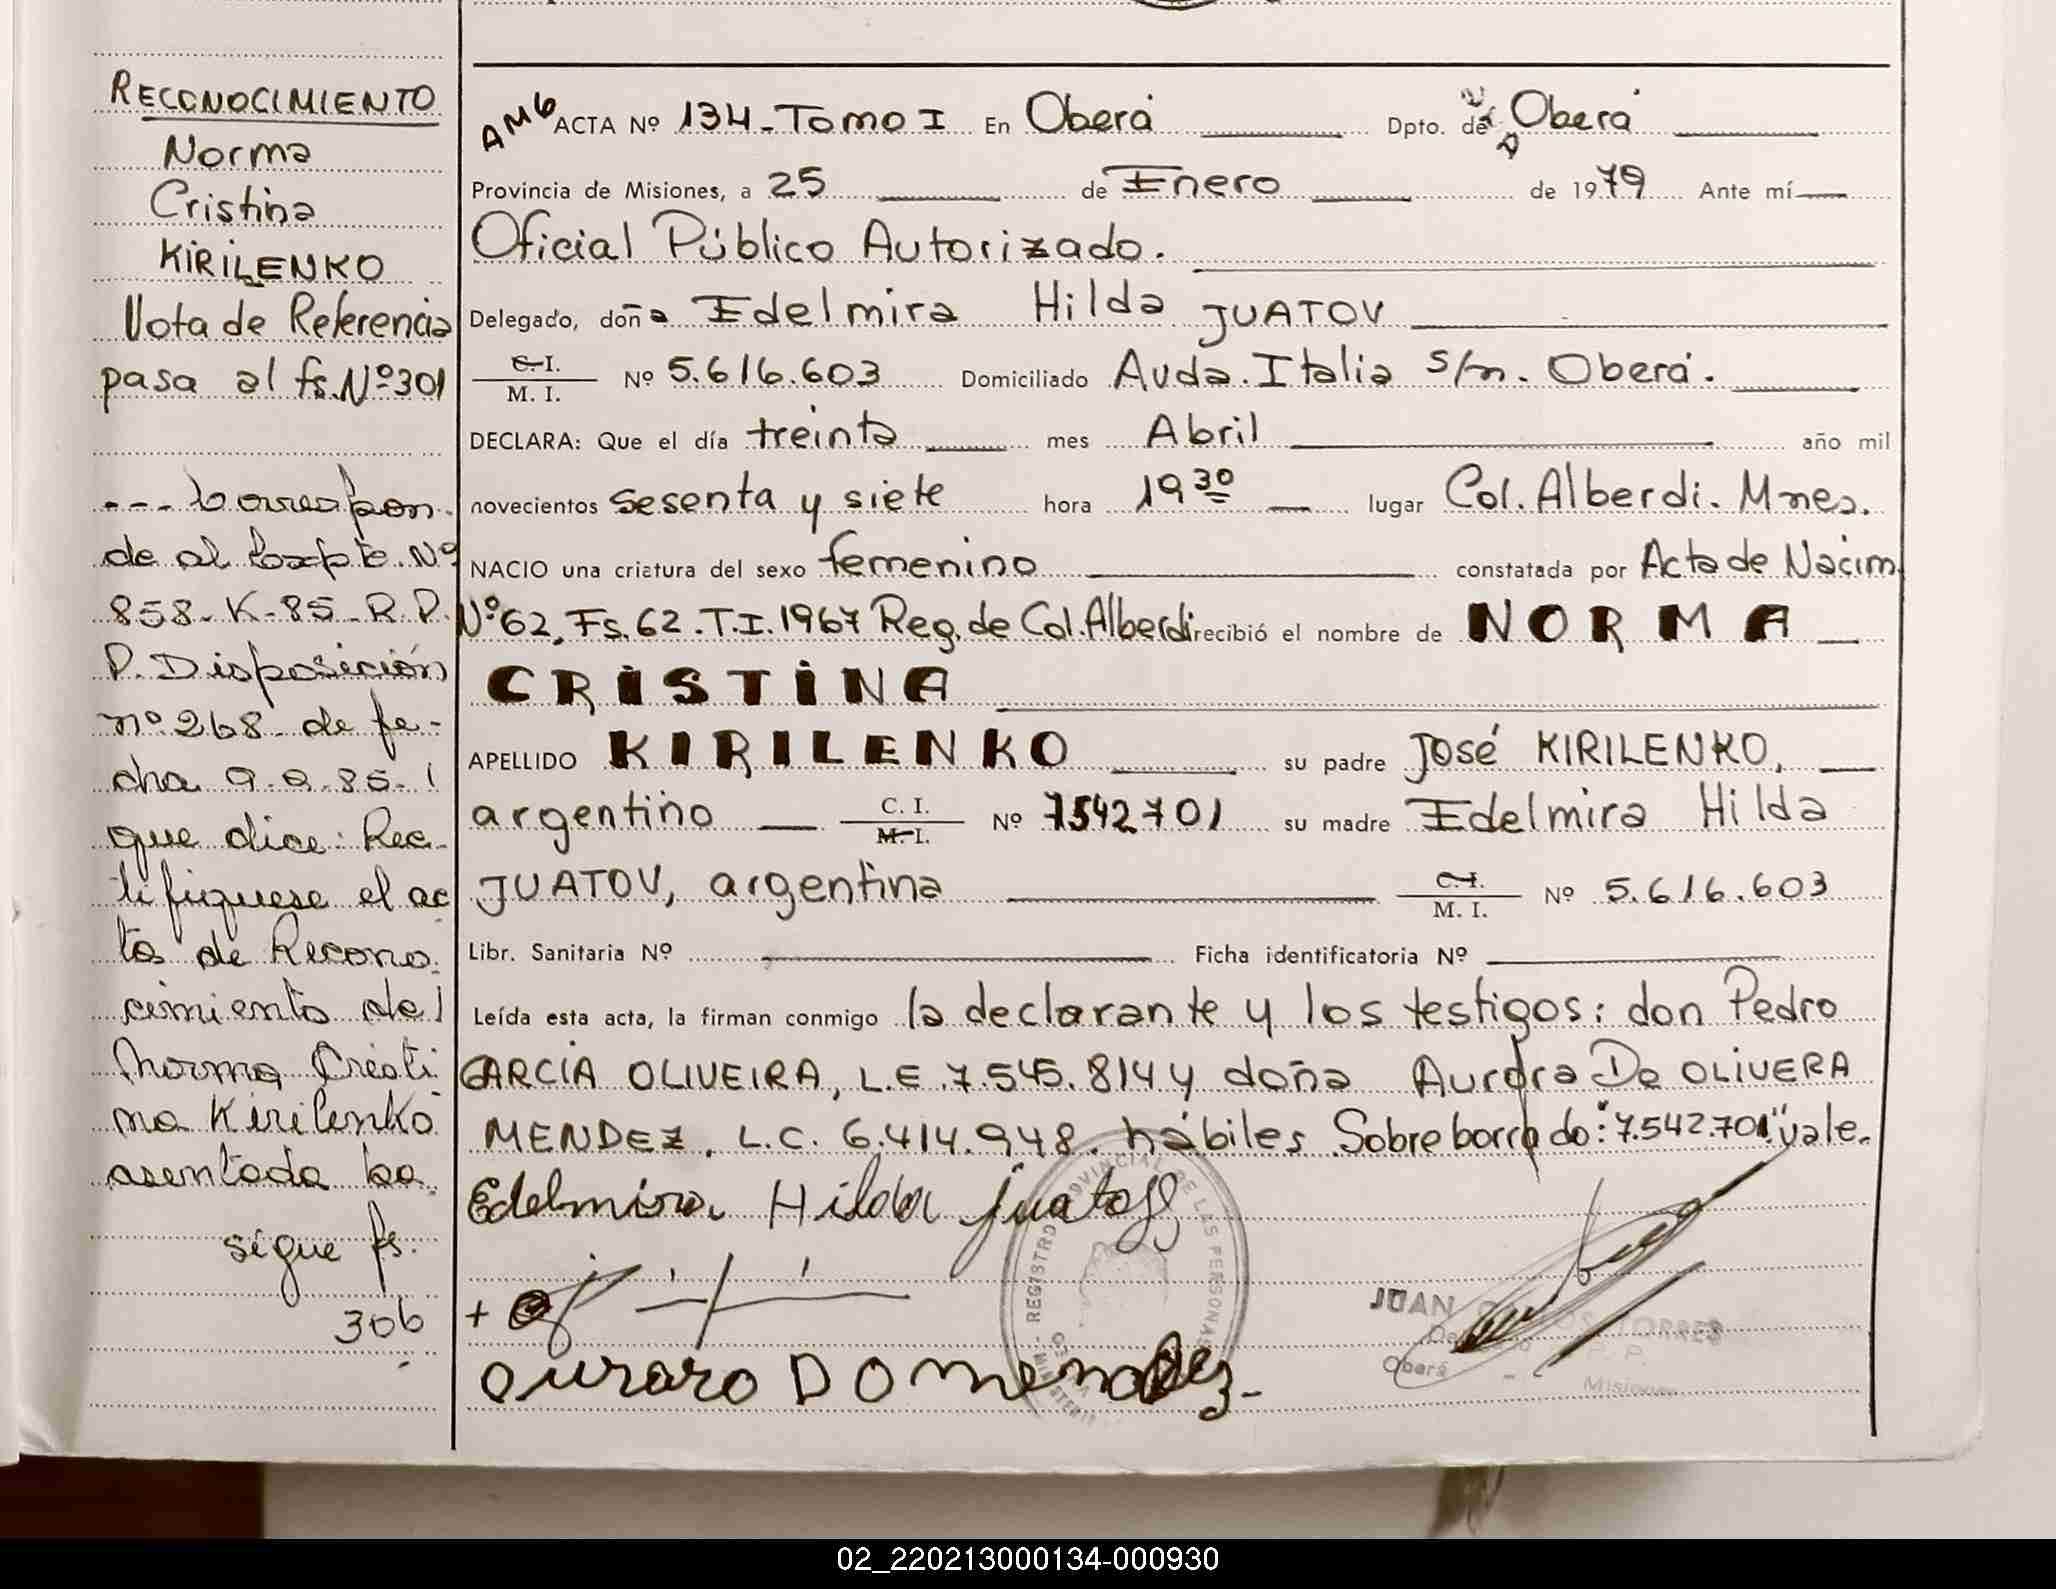 RECONOCIMIENTO
Norma
Cristina
KIRILENKO
Nota de Referencia
pasa al fs. Nº 301
--- Correspon-
de al Expte. Nº
858-K-85-R.P.
P. Disposición
nº 268 de fe-
cha 9.9.85.
que dice: Rec-
tifíquese el ac
ta de Recono-
cimiento de
Norma Cristi
na Kirilenko
asentada ba
sigue fs.
306
AMG ACTA Nº 134-Tomo I En Oberá Dpto. de Oberá
Provincia de Misiones, a 25 de Enero de 1979 Ante mí
Oficial Público Autorizado.
Delegado, doña Edelmira Hilda JUATOV
C.I. M. I. Nº 5.616.603 Domiciliado Avda. Italia s/n. Oberá.
DECLARA: Que el día treinta mes Abril año mil
novecientos sesenta y siete hora 19 30 lugar Col. Alberdi. Mnes.
NACIO una criatura del sexo femenino constatada por Acta de Nacim
Nº 62, Fs. 62. T.I. 1967 Reg. de Col. Alberdi recibió el nombre de NORMA
CRISTINA
APELLIDO KIRILENKO su padre José KIRILENKO,
argentino C. I. M. I. Nº 7542701 su madre Edelmira Hilda
JUATOV, argentina C. I. M. I. Nº 5.616.603
Libr. Sanitaria Nº Ficha identificatoria Nº
Leída esta acta, la firman conmigo la declarante y los testigos: don Pedro
GARCÍA OLIVEIRA, L.E 7.545.814 y doña Aurora Da OLIVERA
MENDEZ. L.C. 6.414.948. hábiles. Sobre borrado: "7.542.701" vale.
Edelmira Hilda Juatov
REGISTRO PROVINCIAL DE LAS PERSONAS
JUAN TORRES
Oberá Misiones
02_220213000134-000930